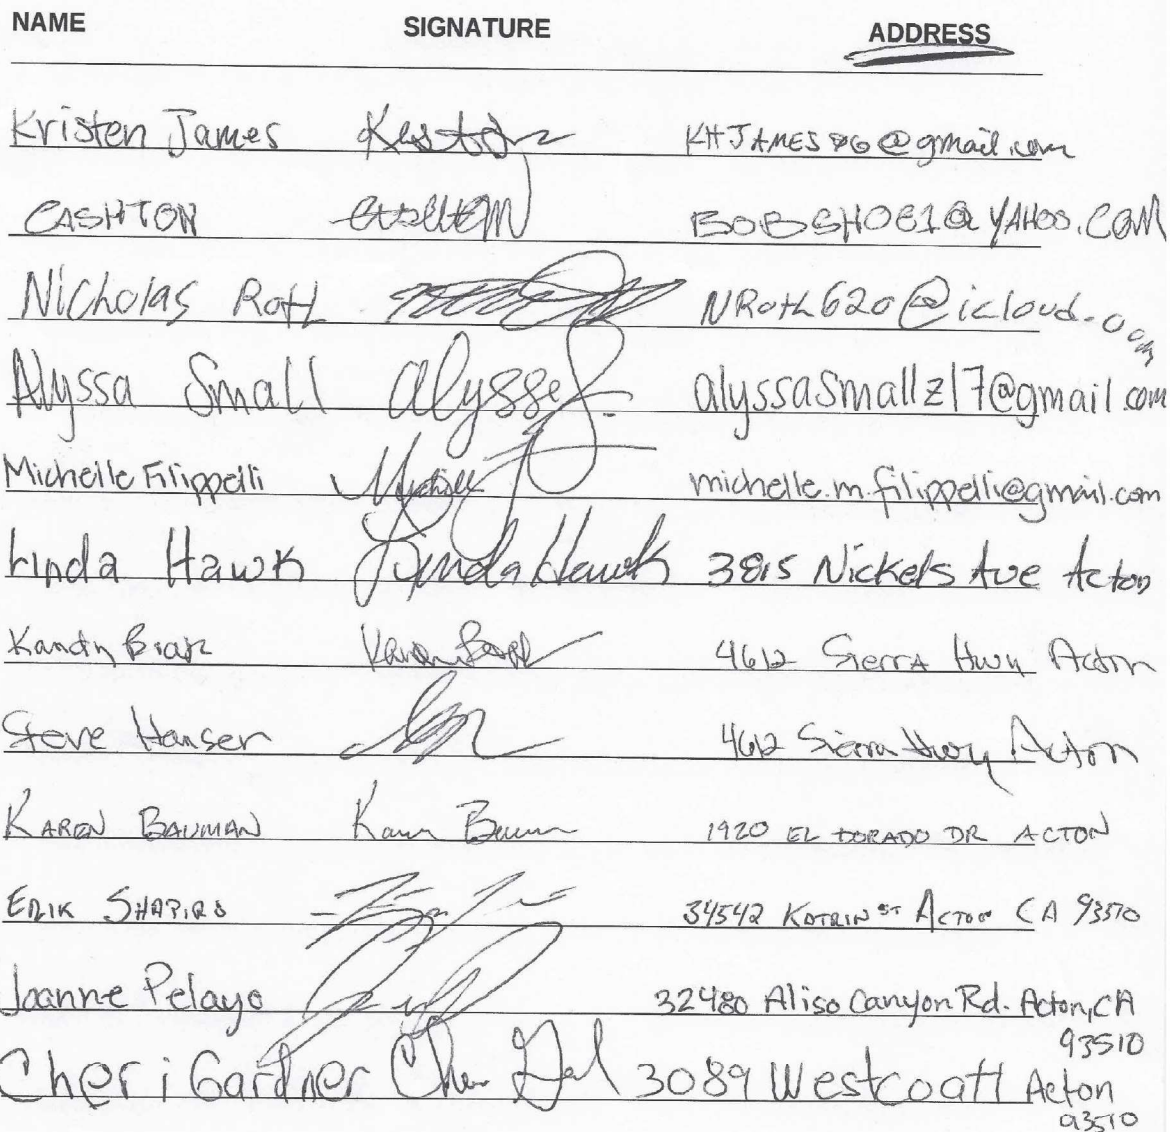 NAME SIGNATURE ADDRESS
Kristen James KHJAMES86@gmail.com
CASHTON BOBSHOE1@YAHOO.COM
Nicholas Roth NRoth620@icloud.com
Alyssa Small alyssa S. alyssasmallz17@gmail.com
Michelle Filippelli Michelle michelle.m.filippelli@gmail.com
Linda Hawk Lynda Hawk 3815 Nickels Ave Acton
4612 Sierra Hwy Acton
Steve Hanser 4612 Sierra Hwy Acton
KAREN BAUMAN 1920 EL DORADO DR ACTON
ERIK SHAPIRO 34542 KATRIN ST ACTON CA 93510
Joanne Pelayo 32480 Aliso Canyon Rd. Acton, CA
93510
Cheri Gardner 3089 Westcoatt Acton
93510